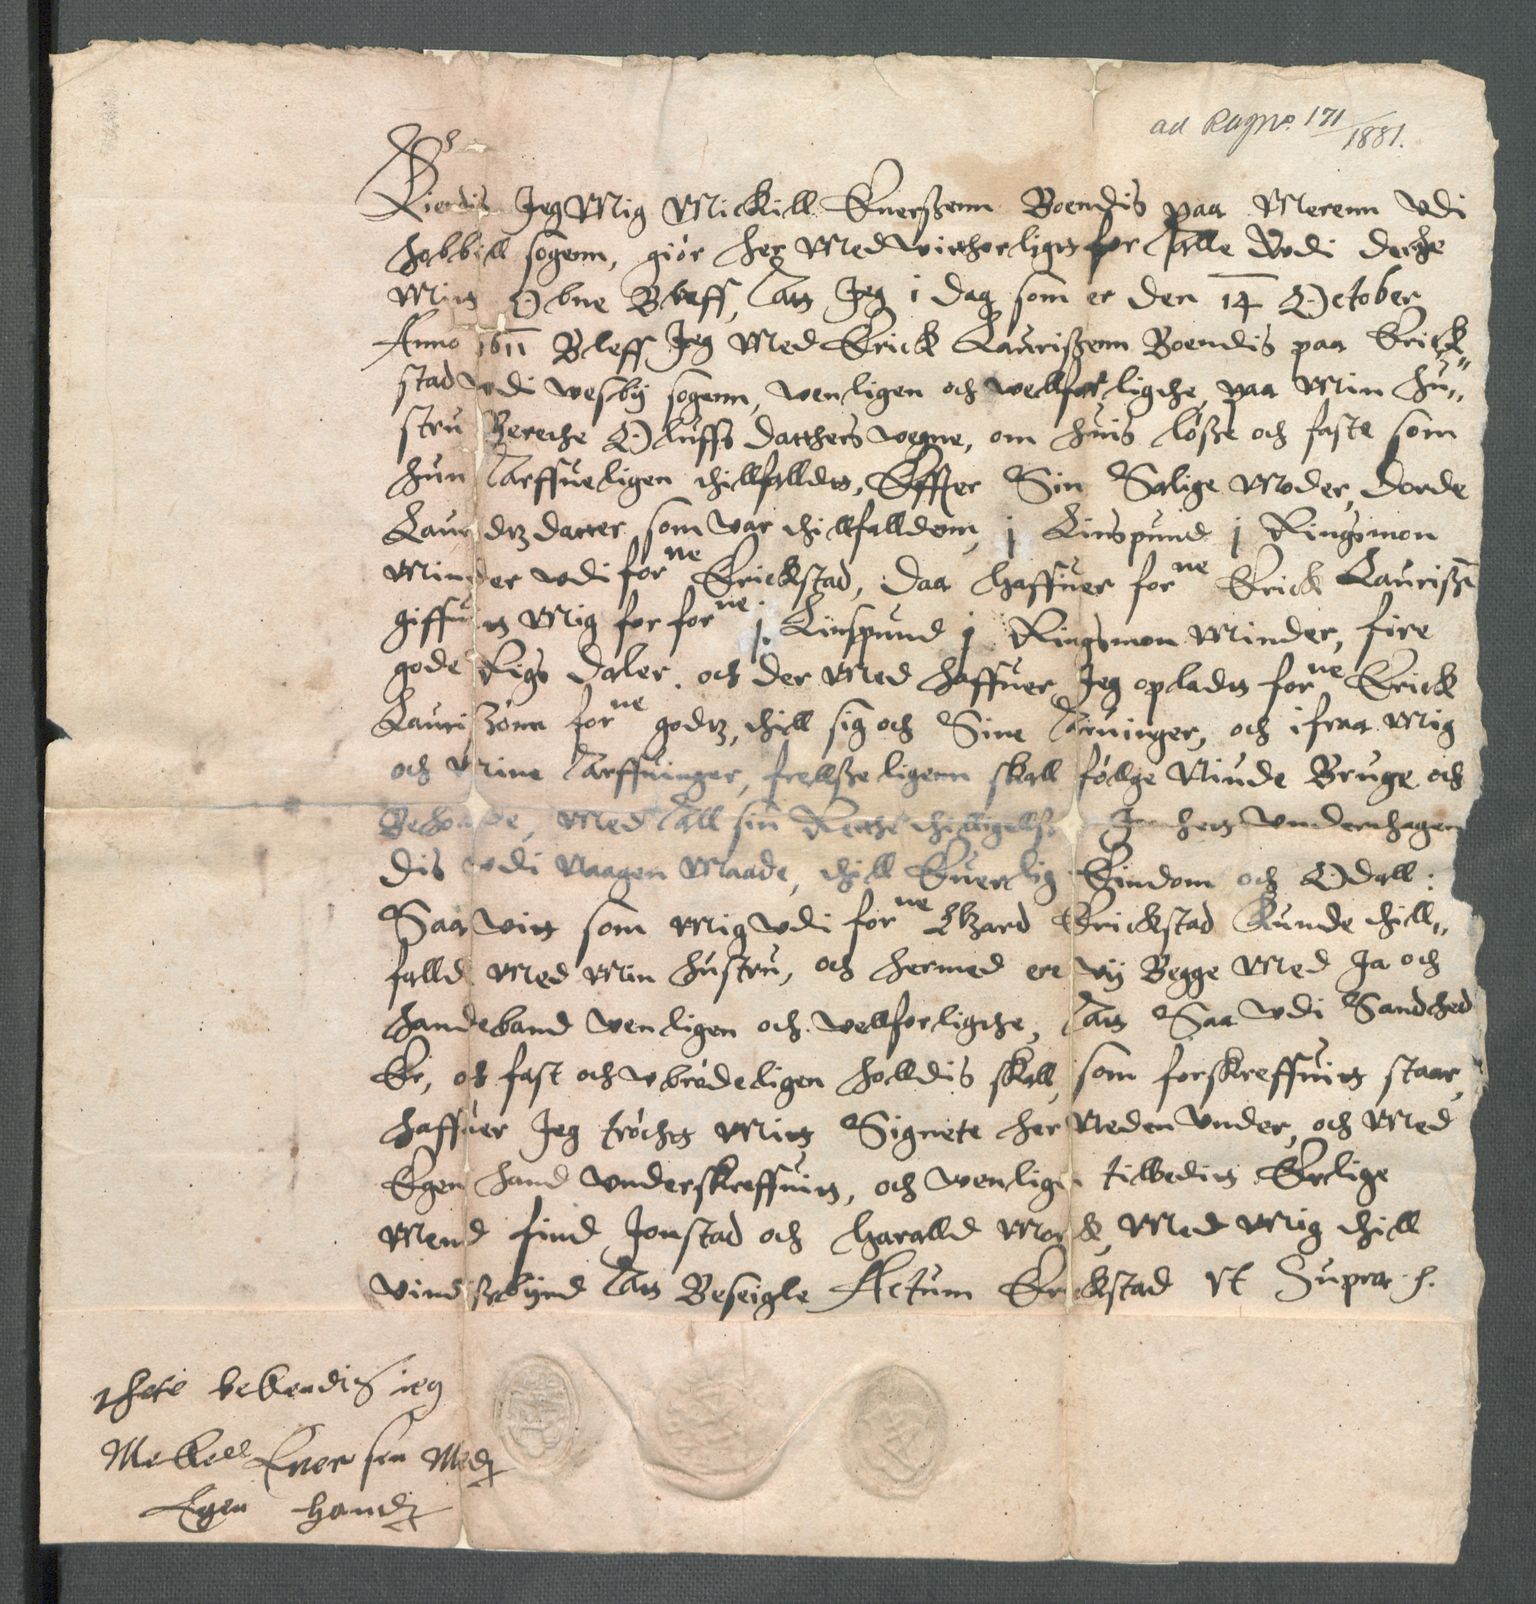 ad Ragnr. 171/1881.
Kiendis Jeg Mig Mickill Euerßenn Boendis paa Merenn vdi
hobbill sogenn, giör her Med vitherligt for Alle Vdi dethe
Mit Obne Breff, Att Jeg i dag som er den 14 October
Anno 1611 Bleff Jeg Med Erick Laurißenn Boendis paa Erick
stad vdi vesby sogenn, venligen och vellforligthe, paa Min hu„
stru Berethe Oluffs datthers vegne, om huis löße och faste som
hun Arffueligen thillfalldt, Effter Sin Salige Moder, dorde
Lauridtz datter som var thillfalldenn, j Linspund j Ringsmon
Minder vdi forne Erickstad, daa haffuer forne Erick Laurißen
giffuit Mig for forne j Linspund j Ringsmon Minder, fire
gode Rigs daler, och der Med haffuer Jeg opladt forne Erick
Laurißönn forne godtz, thill sig och Sine Aruinger, och ifraa Mig
och Mine Arffuinger, frellßeligenn skall fölge Niude Bruge och
Beholde, Med All sin Rette thilligellße Jnthet vndernthagen
dis vdi Naagen Maade, thill Euerlig Eindom och Odall:
Saa vit som Mig vdi forne Gaard Erickstad kunde thill„
falld Med Min hustru, och hermed ere vy Begge Med Ja och
handeband venligen och vellforligthe, Att Saa vdi Sandhed
Er, och fast och vbrödeligen holldis skall, som forskreffuit staar,
haffuer Jeg tröcht Mit Signete her Neden vnder, och Med
Egen hand vnderskreffuit, och venligen tilbedit Erlige
Mend find Jonstad och Haralld Mork, Med Mig thill
vindisbyrd Att Beseigle Actum Erickstad vt Supra.
thete bekendis ieg
Mekell Euer sen Med
Egen hand